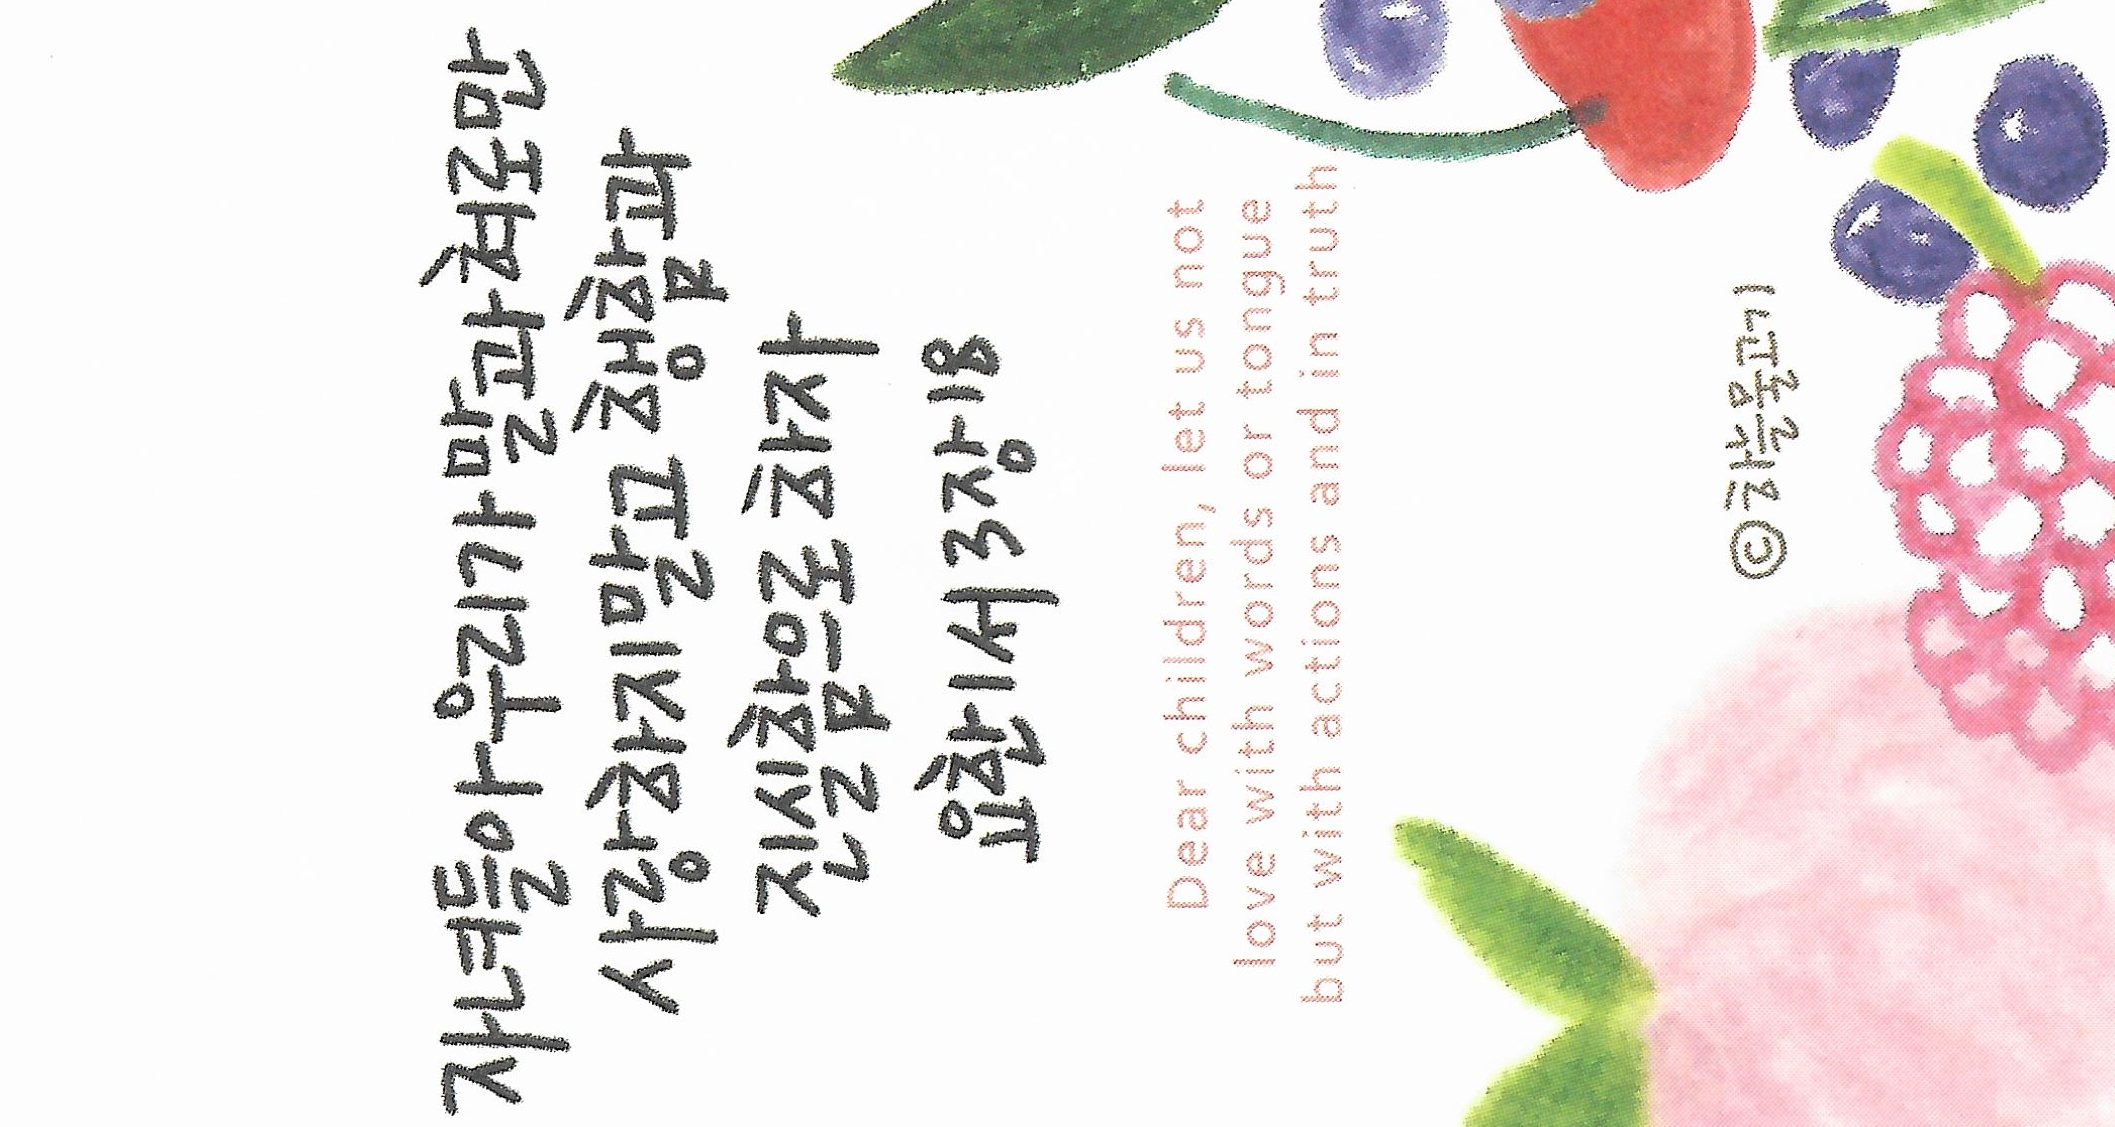 자녀들아 우리가 말과 혀로만
사랑하지 말고 행함과
진실함으로 하자
요한1서 3장 18
Dear children, let us not
love with words or tongue
but with actions and in truth
© 하늘물고기